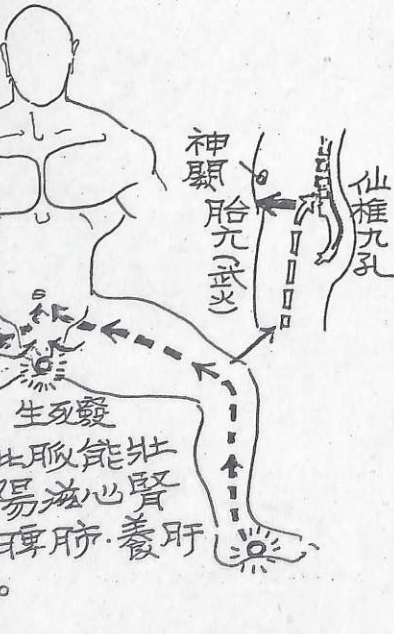 神顯
胎元(武火)
仙椎九孔
生死竅
此脈能壯
陽滋心腎
脾肺.養肝
。